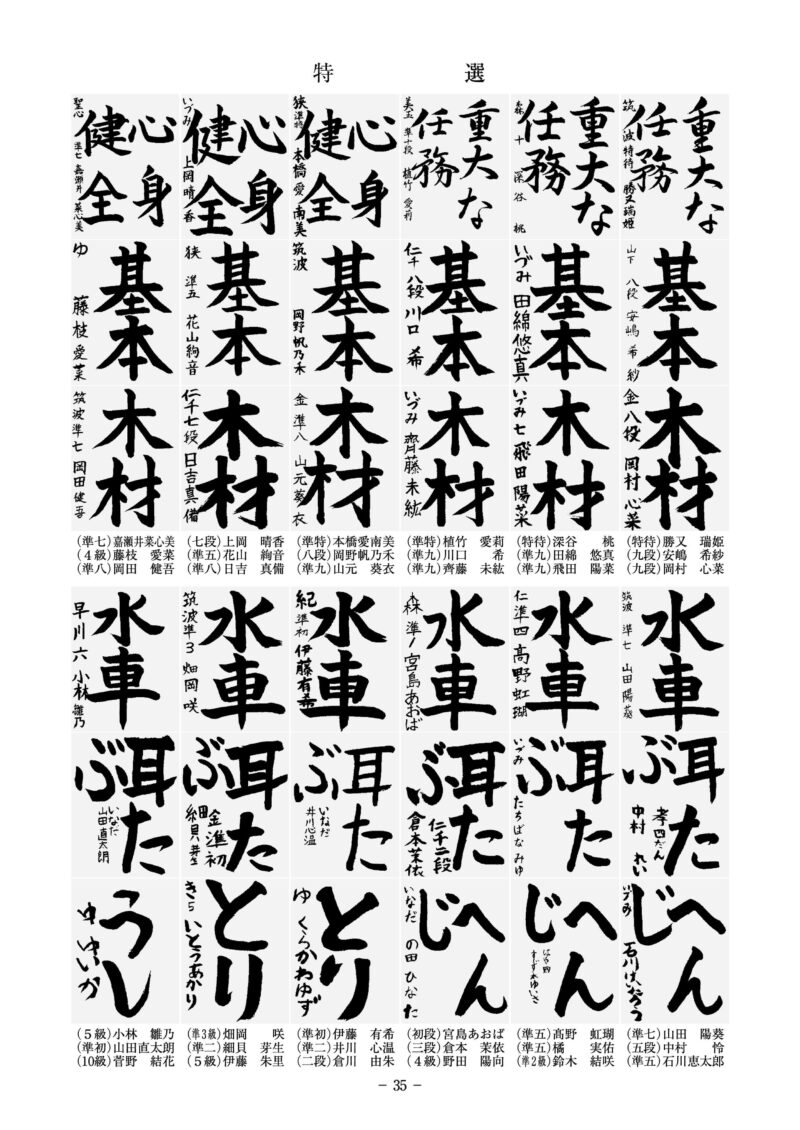 特選
重大な
任務
筑波特待 勝又瑞姫
重大な
任務
森 十 深谷 桃
重大な
任務
美玉 準十段 植竹 愛莉
心身
健全
狭 準特 本橋愛南美
心身
健全
いづみ 上岡晴香
心身
健全
聖心 準七 嘉瀬井菜心美
基本
山下 八段 安嶋希紗
基本
いづみ 田綿悠真
基本
仁千 八段 川口 希
基本
筑波 岡野帆乃禾
基本
狭 準五 花山絢音
基本
ゆ 藤枝愛菜
木材
金 八段 岡村心菜
木材
いづみ七 飛田陽菜
木材
いづみ 齊藤未紘
木材
金 準八 山元葵衣
木材
仁千七段 日吉真備
木材
筑波準七 岡田健吾
(準七)嘉瀬井菜心美 (七段)上岡 晴香 (準特)本橋愛南美 (準特)植竹 愛莉 (特待)深谷 桃 (特待)勝又 瑞姫
(4級)藤枝 愛菜 (準五)花山 絢音 (八段)岡野帆乃禾 (準九)川口 希 (準九)田綿 悠真 (九段)安嶋 希紗
(準八)岡田 健吾 (準八)日吉 真備 (準九)山元 葵衣 (準九)齊藤 未紘 (準九)飛田 陽菜 (九段)岡村 心菜
水車
筑波 準七 山田陽葵
水車
仁 準四 高野虹瑚
水車
森 準1 宮島あおば
水車
紀 準初 伊藤有希
水車
筑波準3 畑岡咲
水車
早川 六 小林雛乃
耳た
ぶ
孝四だん
中村 れい
耳た
ぶ
いづみ たちばなみゆ
耳た
ぶ
仁千二段
倉本茉依
耳た
ぶ
いなだ
井川心温
耳た
ぶ
金準初
細貝芽生
耳た
ぶ
いなだ
山田直太朗
へん
じ
いづみ
石川けいたろう
へん
じ
へん
じ
いなだ の田ひなた
とり
ゆ くらかわゆず
とり
き5 いとうあかり
うし
ゆ ゆいか
(5級)小林 雛乃 (準3級)畑岡 咲 (準初)伊藤 有希 (初段)宮島あおば (準五)髙野 虹瑚 (準七)山田 陽葵
(準初)山田直太朗 (準二)細貝 芽生 (準二)井川 心温 (三段)倉本 茉依 (準五)橘 実佑 (五段)中村 怜
(10級)菅野 結花 (5級)伊藤 朱里 (二段)倉川 由朱 (4級)野田 陽向 (準2級)鈴木 結咲 (準五)石川恵太郎
− 35 −